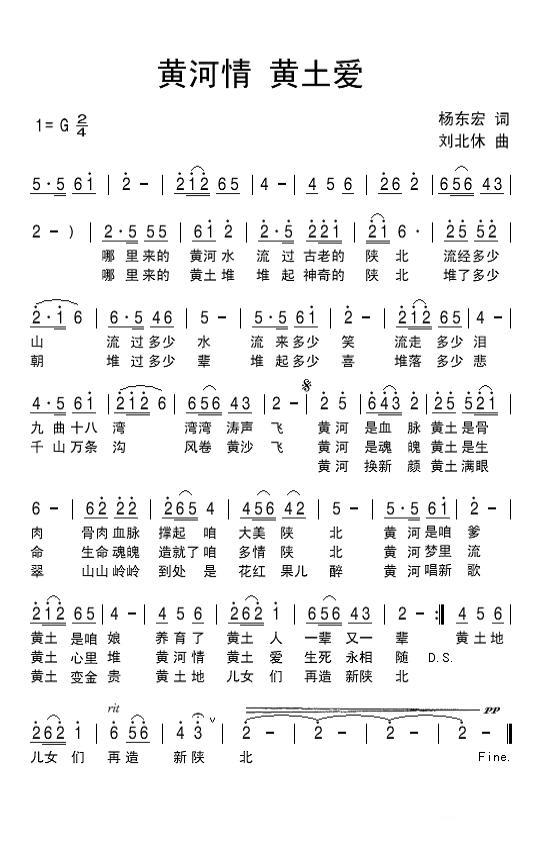 黄河情 黄土爱
1= G 2/4
杨东宏 词
刘北休 曲
5·5 61 | 2 – | 212 65 | 4 – | 4 5 6 | 26 2 | 656 43 |
2 – ) | 2·5 55 | 61 2 | 2·5 221 | 21 6· | 25 52 |
哪里来的 黄河水 流过古老的 陕北 流经多少
哪里来的 黄土堆 堆起神奇的 陕北 堆了多少
2·1 6 | 6·5 46 | 5 – | 5·5 61 | 2 – | 212 65 | 4 – |
山 流过多少 水 流来多少 笑 流走多少 泪
朝 堆过多少 辈 堆起多少 喜 堆落多少 悲
4·5 61 | 212 6 | 656 43 | 2 – | 2 5 | 643 2 | 25 521 |
九曲十八 湾 湾湾涛声 飞 黄河 是血脉 黄土是骨
千山万条 沟 风卷黄沙 飞 黄河 是魂魄 黄土是生
黄河 换新颜 黄土满眼
6 – | 62 22 | 265 4 | 456 42 | 5 – | 5·5 61 | 2 – |
肉 骨肉血脉 撑起咱 大美陕 北 黄河是咱 爹
命 生命魂魄 造就了咱 多情陕 北 黄河梦里 流
翠 山山岭岭 到处是 花红果儿 醉 黄河唱新 歌
212 65 | 4 – | 4 5 6 | 262 1 | 656 45 | 2 – :| 4 5 6 |
黄土是咱 娘 养育了 黄土人 一辈又一 辈 黄土地
黄土心里 堆 黄河情 黄土爱 生死永相 随 D.S.
黄土变金 贵 黄土地 儿女们 再造新陕 北
rit pp
262 1 | 5 56 | 4 3 ∨ | 2 – | 2 – | 2 – | 2 – ‖
儿女们 再造 新陕 北 Fine.